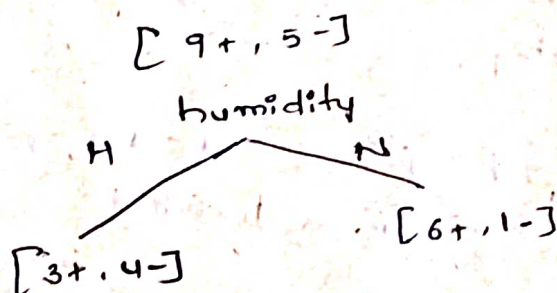 [ 9+ , 5-]
humidity
H N
[3+ , 4-] [6+ , 1-]